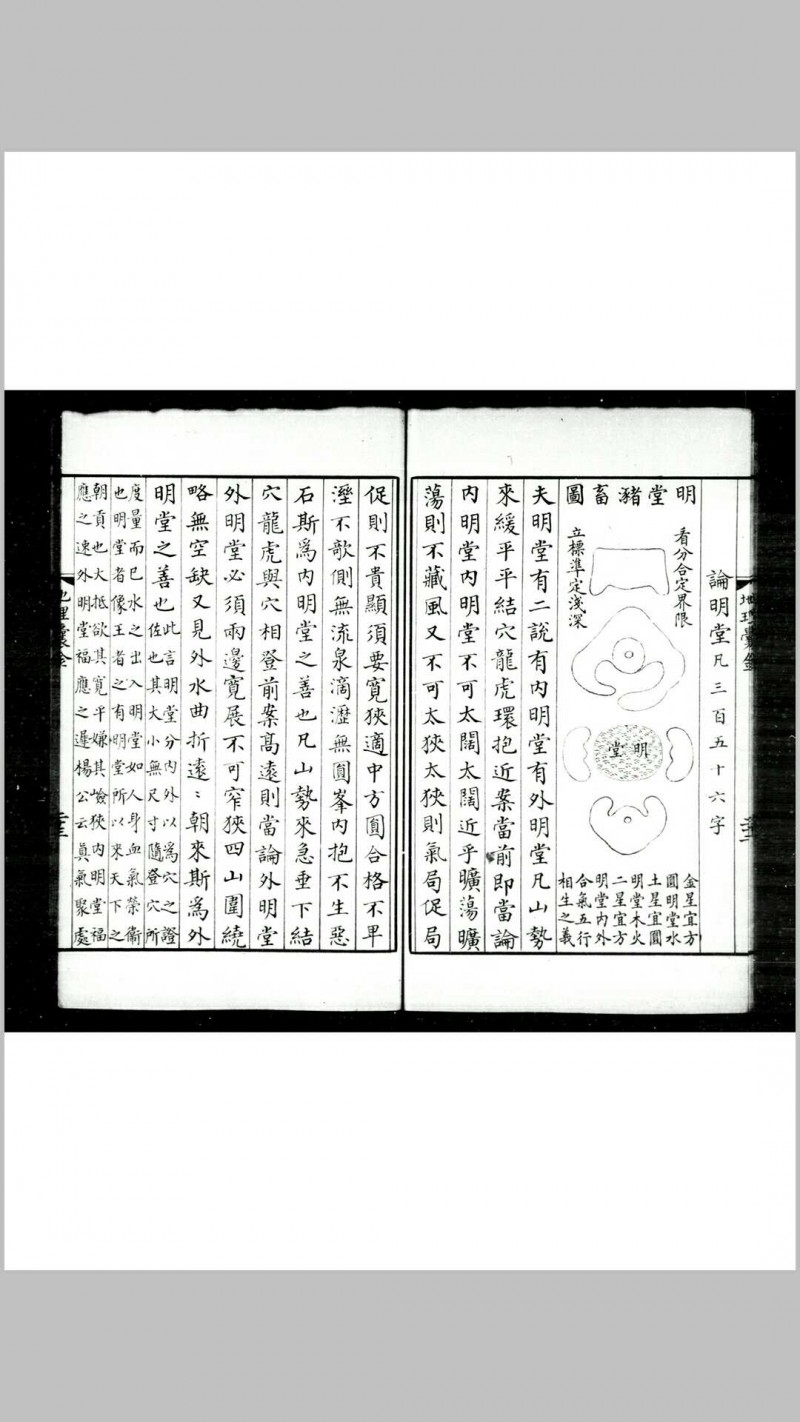 論明堂凡三百五十六字
明堂豬畜圖
看分合定界限
立標準定淺深
明堂
金星宜方
圓明堂水
土星宜圓
明堂木火
二星宜方
明堂內外
合氣五行
相生之義
夫明堂有二說有內明堂有外明堂凡山勢
來緩平平結穴龍虎環抱近案當前即當論
內明堂內明堂不可太闊太闊近乎曠蕩曠
蕩則不藏風又不可太狹太狹則氣局促局
促則不貴顯須要寬狹適中方圓合格不卑
溼不欹側無流泉滴瀝無圓峯內抱不生惡
石斯爲內明堂之善也凡山勢來急垂下結
穴龍虎與穴相登前案高遠則當論外明堂
外明堂必須兩邊寬展不可窄狹四山圍繞
略無空缺又見外水曲折遠遠朝來斯爲外
明堂之善也此言明堂分內外以為穴之證
佐也其大小無尺寸隨登穴所
度量而已水之出入明堂如人身血氣榮衞
也明堂者像王者之有明堂所以來天下之
朝貢也大抵欲其寬平嫌其嶮狹內明堂福
應之速外明堂福應之遲楊公云眞氣聚處
地理囊金